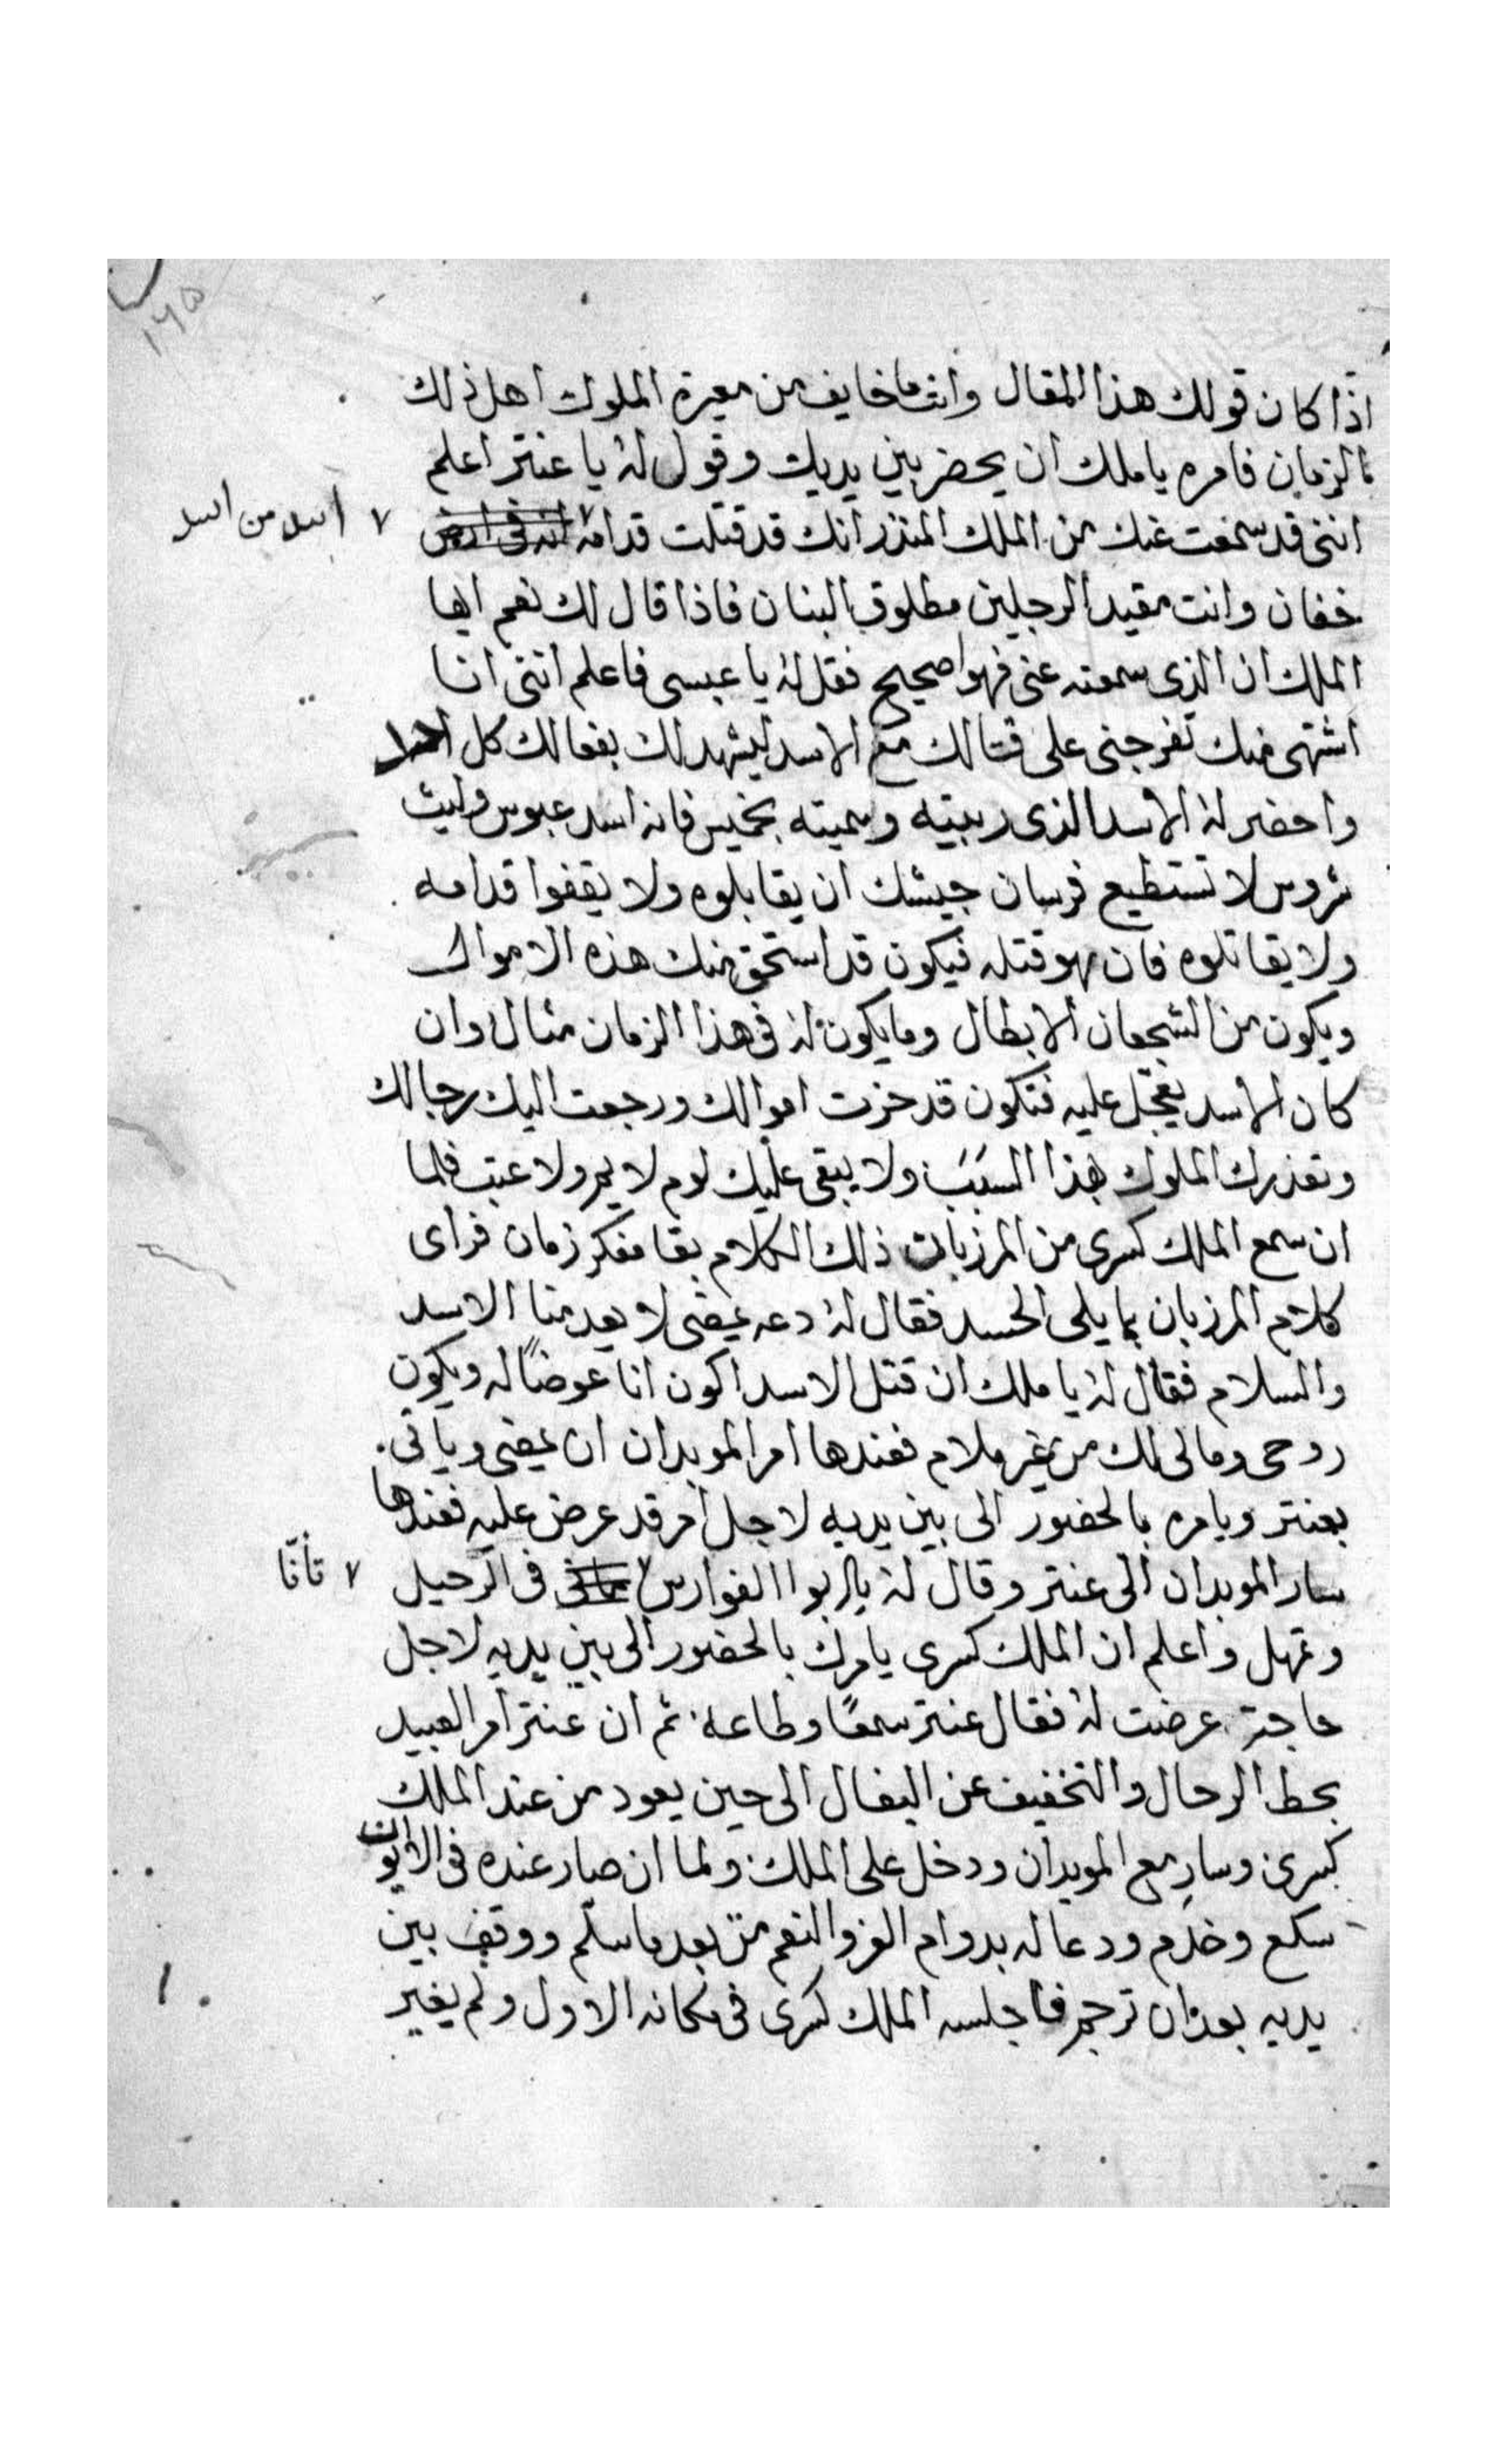 ١٦٥
اذا كان قولك هذا المقال وانت ما خايف من معيرة الملوك اهل ذلك
الزمان فامره يا ملك ان يحضر بين يديك وقول له يا عنتر اعلم
اننى قد سمعت عنك من الملك المنذر انك قد قتلت قدامه
اسد من اسد
خفان وانت مقيد الرجلين مطلوق البنان فاذا قال لك نعم ايها
الملك ان الذى سمعته عنى فهوا صحيح فقل له يا عبسى فاعلم اننى انا
اشتهى منك تفرجنى على قتالك مع الاسد ليشهد لك بفعالك كل احدا
واحضر له الاسد الذى ربيته وسميته بخميس فانه اسد عبوس وليث
شروس لا تستطيع فرسان جيشك ان يقابلوه ولا يقفوا قدامه
ولا يقاتلوه فان هو قتله فيكون قد استحق منك هذه الاموال
ويكون من الشجعان الابطال وما يكون له فى هذا الزمان مثال وان
كان الاسد يعجل عليه فتكون قد حزت اموالك ورجعت اليك رجالك
وتعذرك الملوك بهذا السبب ولا يبقى عليك لوم لايم ولا عتب فلما
ان سمع الملك كسرى من المرزبان ذلك الكلام بقا مفكر زمان فراى
كلام المرزبان بما يلى الحسد فقال له دعه يمضى لا يعدمنا الاسد
والسلام فقال له يا ملك ان قتل الاسد اكون انا عوضًا له ويكون
روحى ومالى لك من غير ملام فعندها امر الموبدان ان يمضى وياتى
بعنتر ويامره بالحضور الى بين يديه لاجل أمر قد عرض عليه فعندها
سار الموبدان الى عنتر وقال له يا ابوا الفوارس فى الرحيل
تأنّا
وتمهل واعلم ان الملك كسرى يامرك بالحضور الى بين يديه لاجل
حاجة عرضت له فقال عنتر سمعًا وطاعة ثم ان عنتر أمر العبيد
بحط الرحال والتخفيف عن البغال الى حين يعود من عند الملك
كسرى وسار مع الموبدان ودخل على الملك ولما ان صار عنده فى الايوان
سكع وخدم ودعا له بدوام العز والنعم من بعد ما سلّم ووقف بين
يديه بعد ان ترجم فاجلسه الملك كسرى فى مكانه الاول ولم يغير